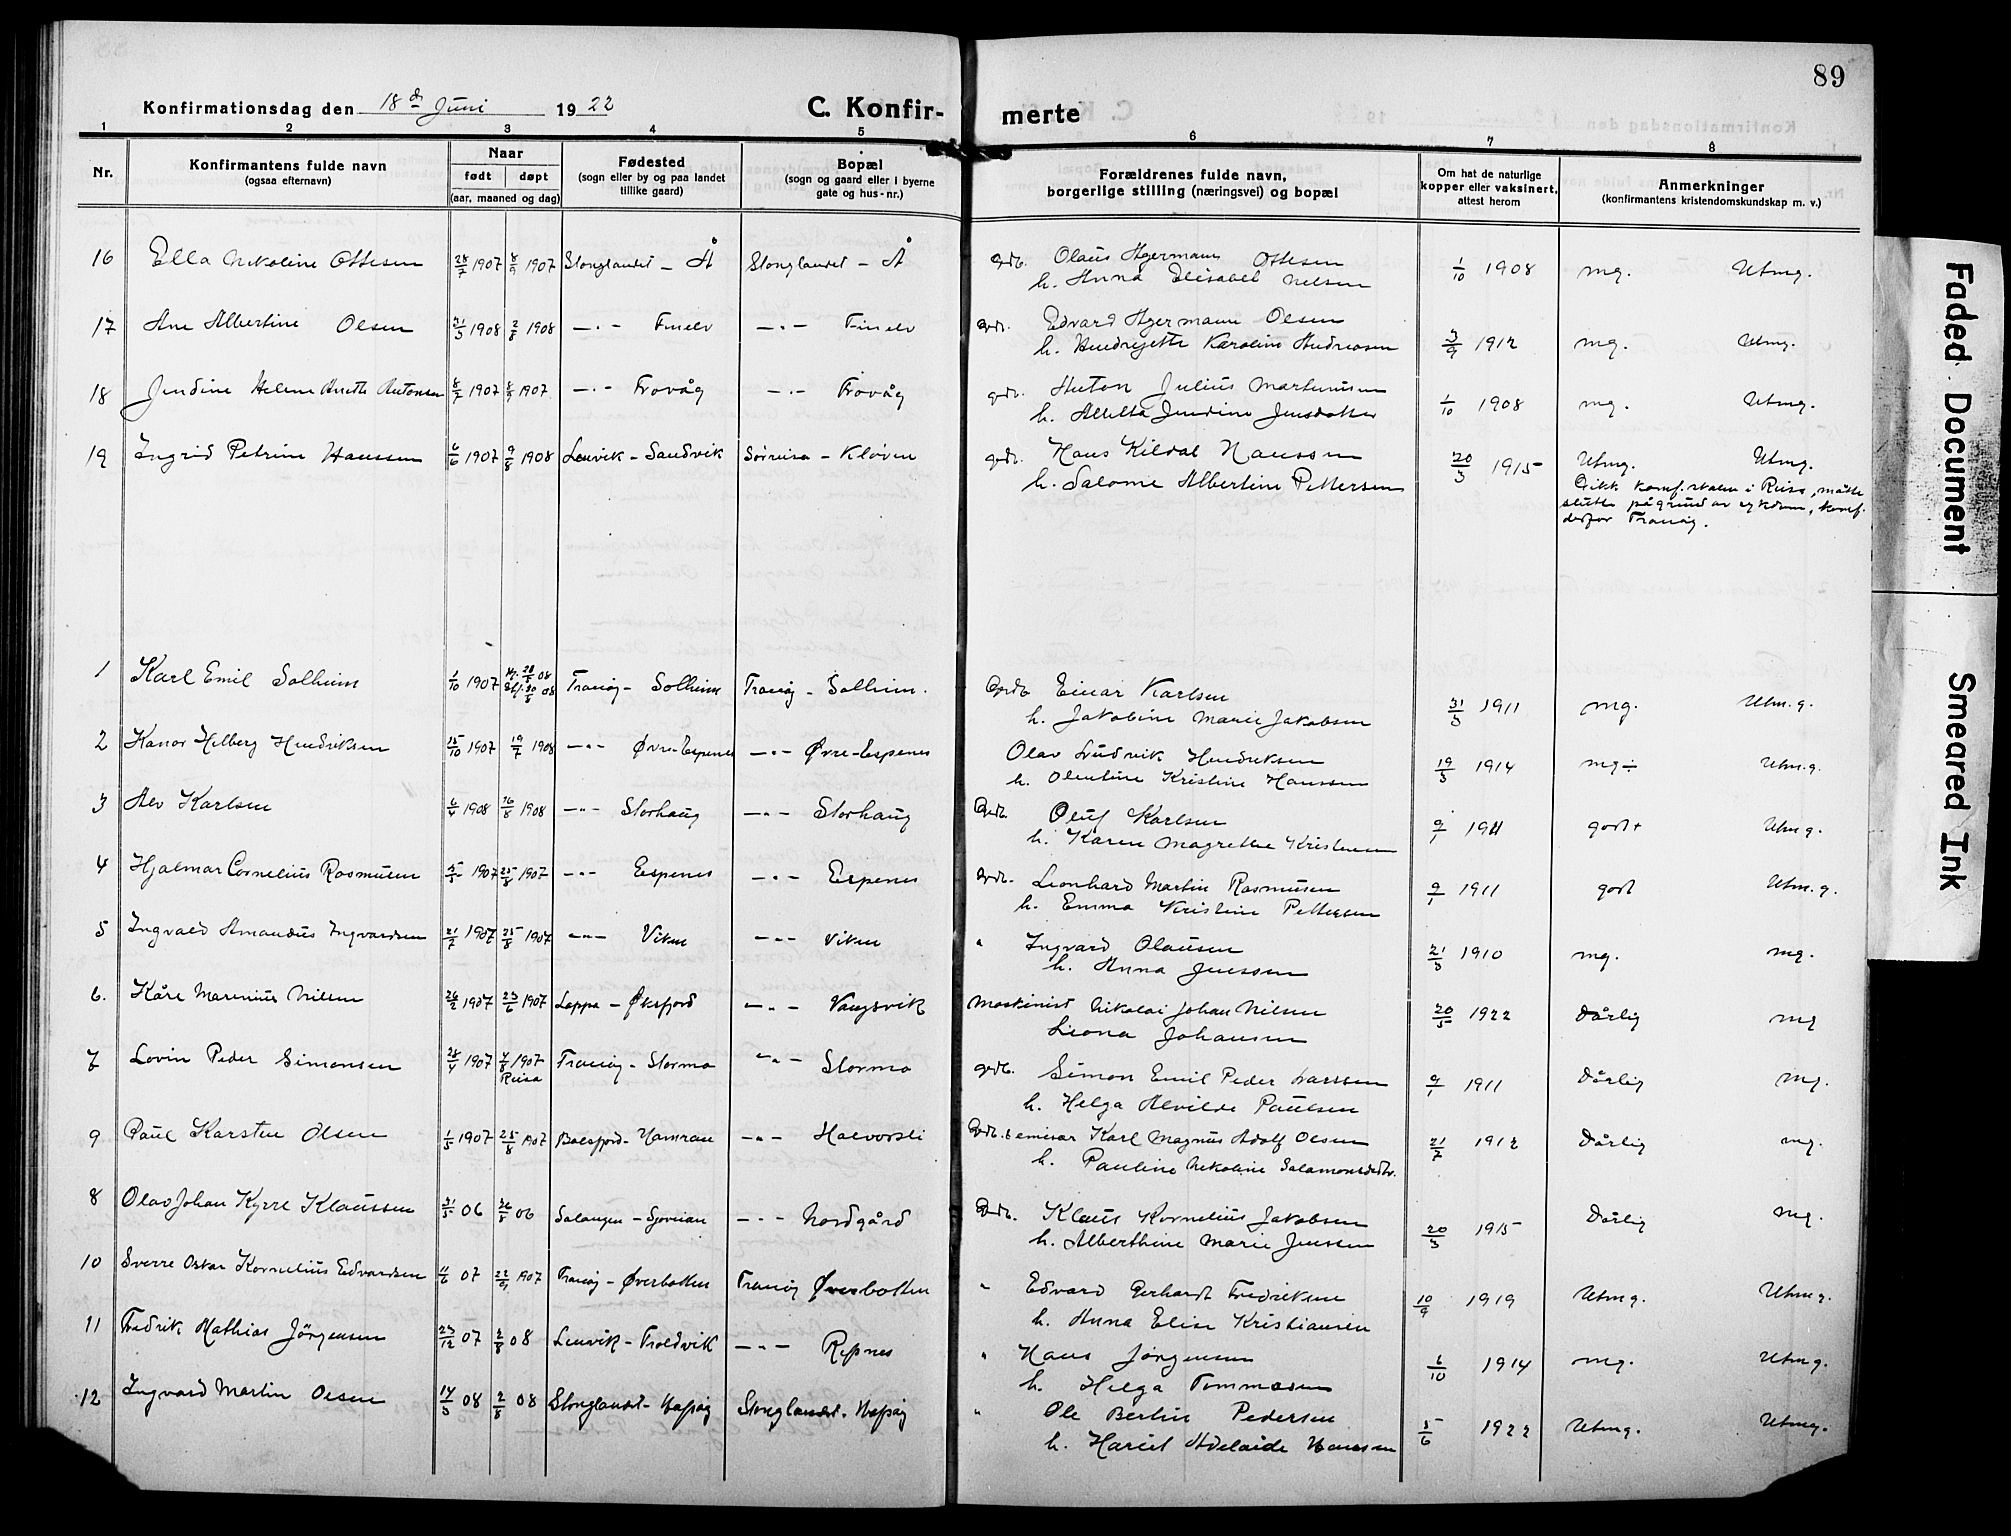 89
Konfirmationsdag den 18de Juni 1922
C. Konfirmerte
1 2 3 4 5 6 7 8
Nr.
Konfirmantens fulde navn
(ogsaa efternavn)
Naar
født døpt
(aar, maaned og dag)
Fødested
(sogn eller by og paa landet
tillike gaard)
Bopæl
(sogn og gaard eller i byerne
gate og hus-nr.)
Forældrenes fulde navn,
borgerlige stilling (næringsvei) og bopæl
Om hat de naturlige
kopper eller vaksinert,
attest herom
Anmerkninger
(konfirmantens kristendomskundskap m. v.)
16 Ella Nikoline Ottesen 28/7 1907 8/9 1907 Stonglandet - Å Stonglandet - Å gdb. Olaus Hgermann Ottesen 1/10 1908 mg. Utmg.
h. Anna Elisabet Nelsen
17 Ane Albertine Olsen 1908 2/8 1908 -"- Finelv -"- Finelv gdb. Edvard Hgermann Olsen 3/9 1912 mg. Utmg.
h. Hendrijette Karoline Andreasen
18 Jendine Helene Anette Antonsen 8/7 1907 1907 -"- Frovåg -"- Frovåg gdb. Anton Julius Martinusen 1/10 1908 mg. Utmg.
h. Jendine Jensdatter
19 Ingrid Petrine Hanssen 6/6 1907 9/8 1908 Lenvik - Sandvik Sørreisa - Kløven gdb. Hans Kildal Hanssen 20/3 1915 Utmg. Utmg.
h. Salome Albertine Pettersen
Gikk konf.skolen i Reisa, måtte
slutte på grund av sykdom, konf.
derfor Tranøy.
1 Karl Emil Solheim 1/10 1907 08 Tranøy - Solheim Tranøy - Solheim. Gdb. Einar Karlsen 31/3 1911 mg. Utm.g.
h. Jakobine Marie Jakobsen
2 Kanor Hilberg Hendriksen 15/10 1907 19/7 1908 -"- Øvre-Espenes -"- Øvre-Espenes Olav Ludvik Hendriksen 19/3 1914 mg÷ Utm.g.
h. Olentine Kristine Hanssen
3 Alv Karlsen 6/4 1908 16/8 1908 -"- Storhaug -"- Storhaug Gdb. Oluf Karlsen 9/1 1911 godt+ Utmg.
h. Karen Magrethe Kristensen
4 Hjalmar Cornelius Rasmusen 5/5 1907 25/8 1907 -"- Espenes -"- Espenes Gdb. Leonhard Martin Rasmusen 9/1 1911 godt Utm.g.
h. Emma Kristine Pettersen
5 Ingvald Amandus Ingvardsen 21/7 1907 25/8 1907 -"- Viken -"- Viken " Ingvard Olausen 21/3 1910 mg. mg.
h. Anna Jenssen
6. Kåre Marenius Nilsen 26/2 1907 23/6 1907 Loppa - Øksfjord -"- Vangsvik Maskinist Nikolai Johan Nilsen 20/5 1922 Dårlig mg
Leona Johansen
7 Lovin Peder Simonsen 28/4 1907 4/8 1907 Tranøy - Stormo -"- Stormo gdb. Simon Emil Peder Larssen 9/1 1911 Dårlig mg.
Reisa
h. Helga Alvilde Paulsen
9 Paul Karsten Olsen 1/5 1907 25/8 1907 Balsfjord - Hamran -"- Halvorsli Gdb. Karl Magnus Adolf Olsen 21/7 1912 Dårlig mg.
h. Pauline Nikoline Salamonsdatr.
8 Olav Johan Kyrre Klaussen 31/5 06 26/8 06 Salangen - Sjøveian -"- Nordgård Gdb. Klaus Kornelius Jakobsen 20/3 1915 Dårlig mg.
h. Alberthine Marie Jenssen
10 Sverre Oskar Kornelius Edvardsen 11/6 07 1907 Tranøy - Øverbotten Tranøy Øverbotten " Edvard Gerhardt Fredriksen 10/9 1919 Utmg. Utmg.
h. Anna Elise Kristiansen
11 Fredrik Mathias Jörgensen 23/12 07 2/8 08 Lenvik - Troldvik -"- Refsnes " Hans Jørgensen 6/10 1914 mg. Utmg.
h. Helga Tommasen
12 Ingvard Martin Olsen 14/3 08 2/8 08 Stonglandet - Hofsøy Stonglandet - Hofsøy " Ole Bertin Pedersen 5/6 1922 Utmg. Utmg.
h. Adelaide Hanssen
Faded Document Smeared Ink